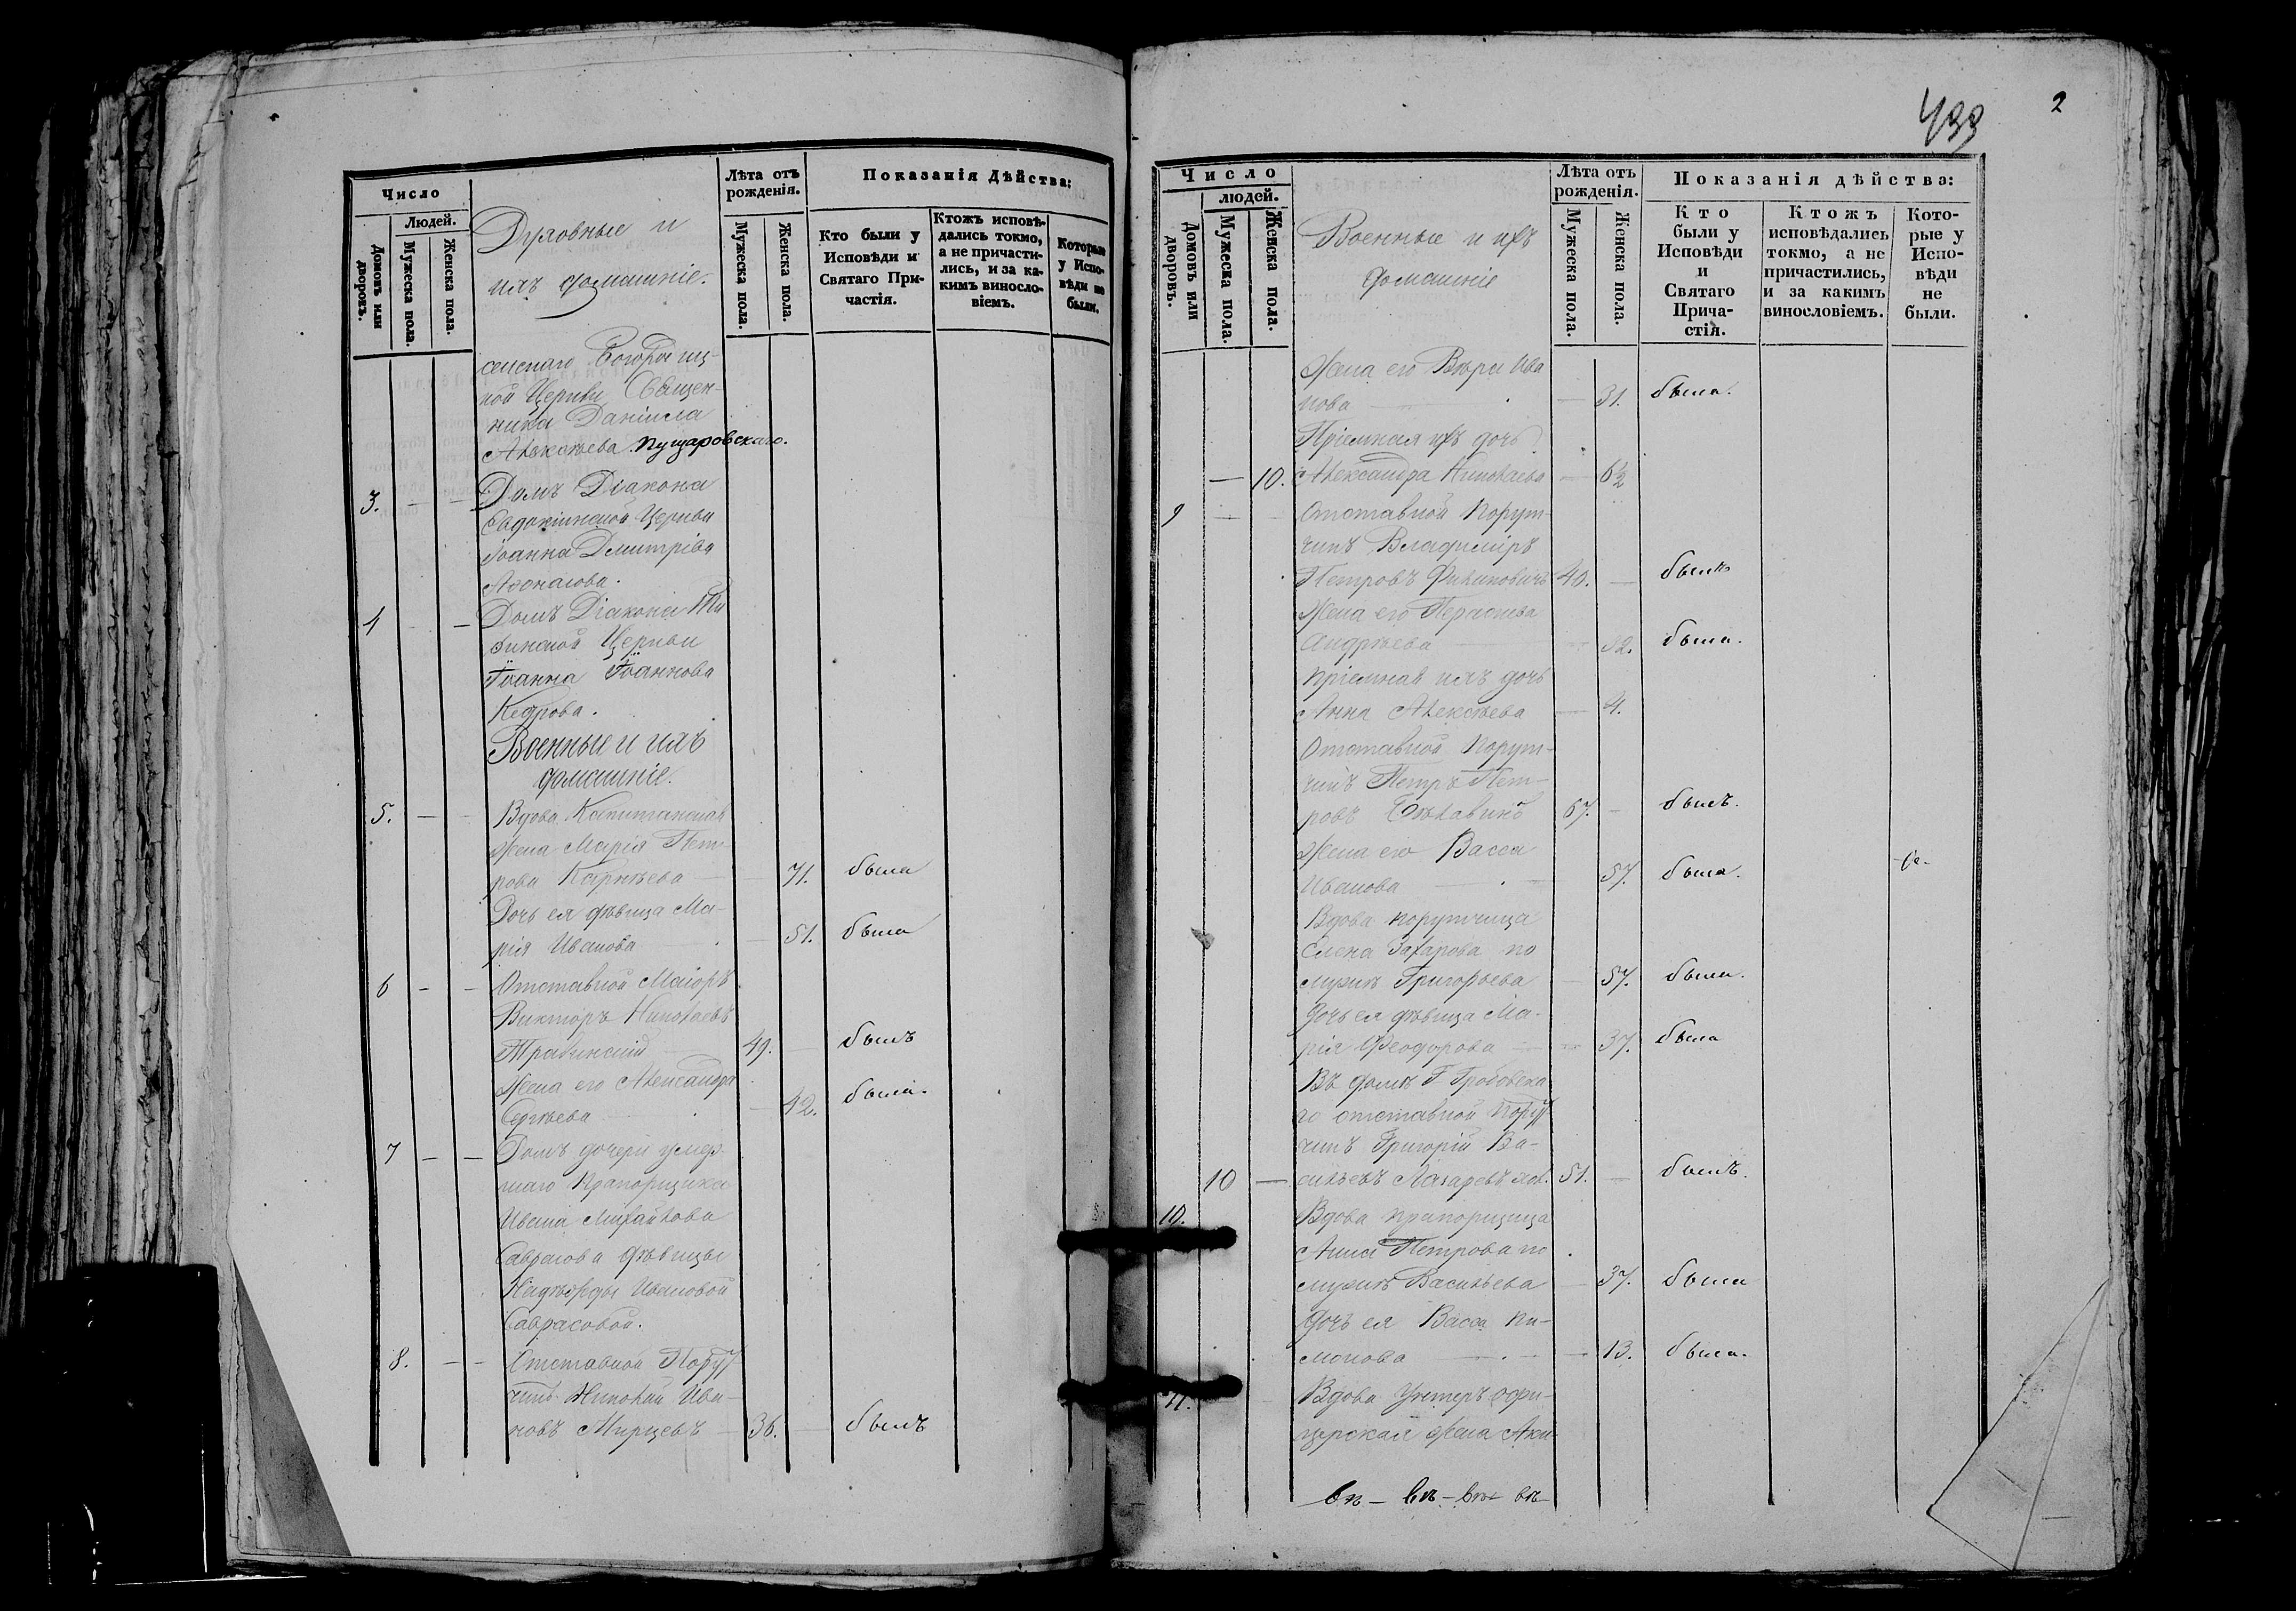 Число
Людей.
Домовъ или дворовъ.
Мужеска пола.
Женска пола.
Духовные и
ихъ домашніе.
Лѣта отъ рожденія.
Мужеска пола.
Женска пола.
Показанія Дѣйства:
Кто были у Исповѣди и Святаго Причастія.
Ктожъ исповѣдались токмо, а не причастились, и за какимъ винословіемъ.
Которые у Исповѣди не были.
ной Церкви Священ-
ника Даніила
Алексѣева Пущаровскаго.
3. — — Домъ Діакона
Евдокіинской Церкви
Іоанна Дмитріева
Аѳонасова.
4 — — Домъ Діакона
Церкви
Іоанна Іоаннова
Кедрова.
Военные и ихъ
домашніе.
5. — — Вдова Капитанская
жена Марія Пет-
рова Карнѣева — — 71. была
Дочь ея дѣвица Ма-
рія Иванова — 51. была
6 — — Отставной Маіоръ
Викторъ Николаевъ
49. — былъ
Жена его Александра
Сергѣева — 42. была.
7 — — Домъ дочери умер-
шаго Прапорщика
Ивана Михайлова
Саврасова дѣвицы
Надѣжды Ивановой
Саврасовой.
8. — — Отставной Поруч
чикъ Николай Ива-
новъ Мирцевъ — 36. — былъ
433
2
Число
людей.
Домовъ или дворовъ.
Мужеска пола.
Женска пола.
Военные и ихъ
домашніе
Лѣта отъ рожденія.
Мужеска пола.
Женска пола.
Показанія дѣйства:
Кто были у Исповѣди и Святаго Причастія.
Ктожъ исповѣдались токмо, а не причастились, и за какимъ винословіемъ.
Которые у Исповѣди не были.
Жена его Вѣра Ива
нова — 31. была.
Пріемная ихъ дочь
— 10. Александра Николаева — 6½
9 — — Отставной Порут-
чикъ Владиміръ
Петровъ Филиповичъ 40. — былъ
Жена его Параскева
Андрѣева — была.
Пріемная ихъ дочь
Анна Алексѣева — 4.
Отставной Порут-
чикъ Петръ Пет-
ровъ 67. — былъ.
Жена его Васса
Иванова — 57. была.
Вдова порутчица
Елена Захарова по
мужѣ Григорьева — 57. была.
Дочь ея дѣвица Ма-
рія Феодорова — 37. была
Въ домѣ Г.
го отставной Поруч
чикъ Григорій Ва-
10 — сильевъ Лазаревъ 51. — былъ.
10. Вдова прапорщица
Анна Петрова по
мужѣ Васильева — 37. была
Дочь ея Васса Фи-
монова — 13. была.
11. Вдова Унтеръ офи-
церская жена Аки-